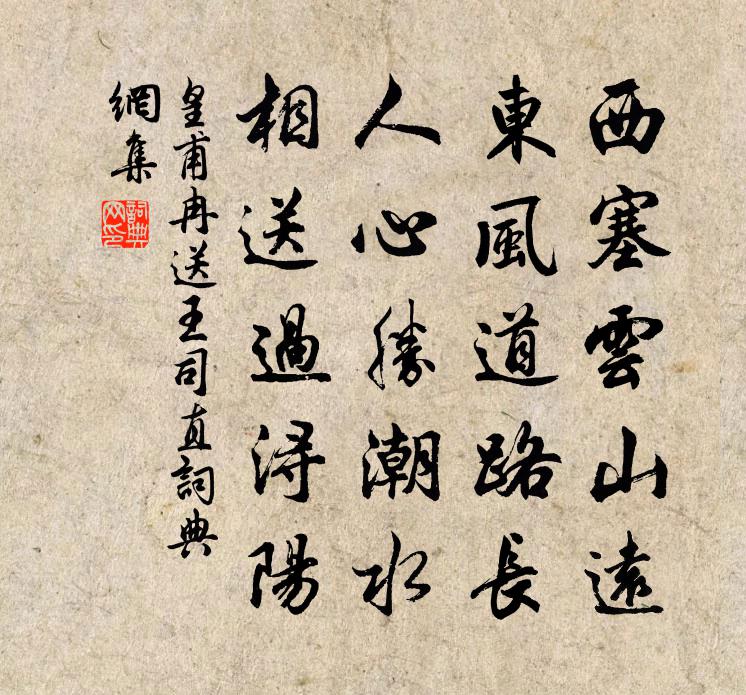 西塞雲山遠
東風道路長
人心勝潮水
相送過潯陽
皇甫冉送王司直詞典
網集
詞典
网印